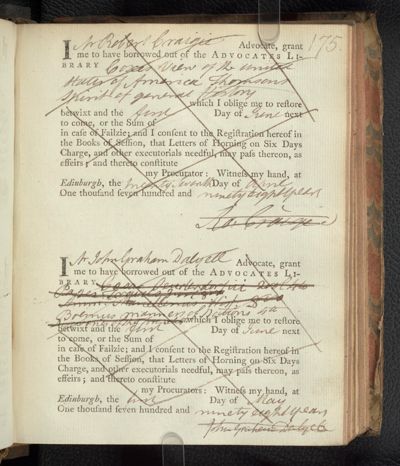 175.
I Mr Robert Craigie Advocate, grant
me to have borrowed out of the ADVOCATES LI-
BRARY Coxe's View of the United
States of America Thomson's
Spirit of general History
which I oblige me to reſtore
betwixt and the first Day of June next
to come, or the Sum of
in caſe of Failzie; and I conſent to the Regiſtration hereof in
the Books of Seſſion, that Letters of Horning on Six Days
Charge, and other executorials needful, may paſs thereon, as
effeirs; and thereto conſtitute
my Procurator: Witneſs my hand, at
Edinburgh, the Day of
One thouſand ſeven hundred and ninety eight years
Ro: Craigie
I Mr John Graham Dalyell Advocate, grant
me to have borrowed out of the ADVOCATES LI-
BRARY
manners of Nations
which I oblige me to reſtore
betwixt and the first Day of June next
to come, or the Sum of
in caſe of Failzie; and I conſent to the Regiſtration hereof in
the Books of Seſſion, that Letters of Horning on Six Days
Charge, and other executorials needful, may paſs thereon, as
effeirs; and thereto conſtitute
my Procurators: Witneſs my hand, at
Edinburgh, the first Day of May
One thouſand ſeven hundred and ninety eight years
John Graham Dalyell